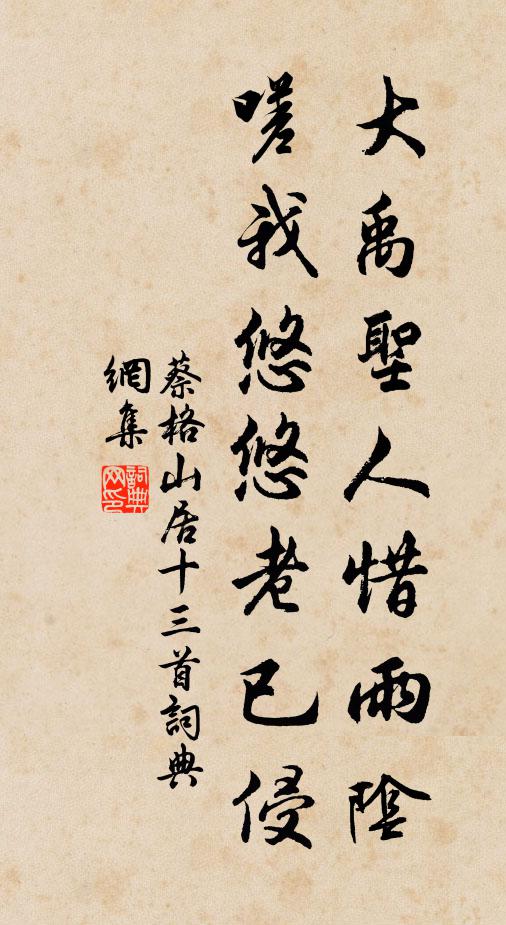 大禹聖人惜雨陰
嗟我悠悠老已侵
蔡格山居十三首詞典
網集
詞典
网印